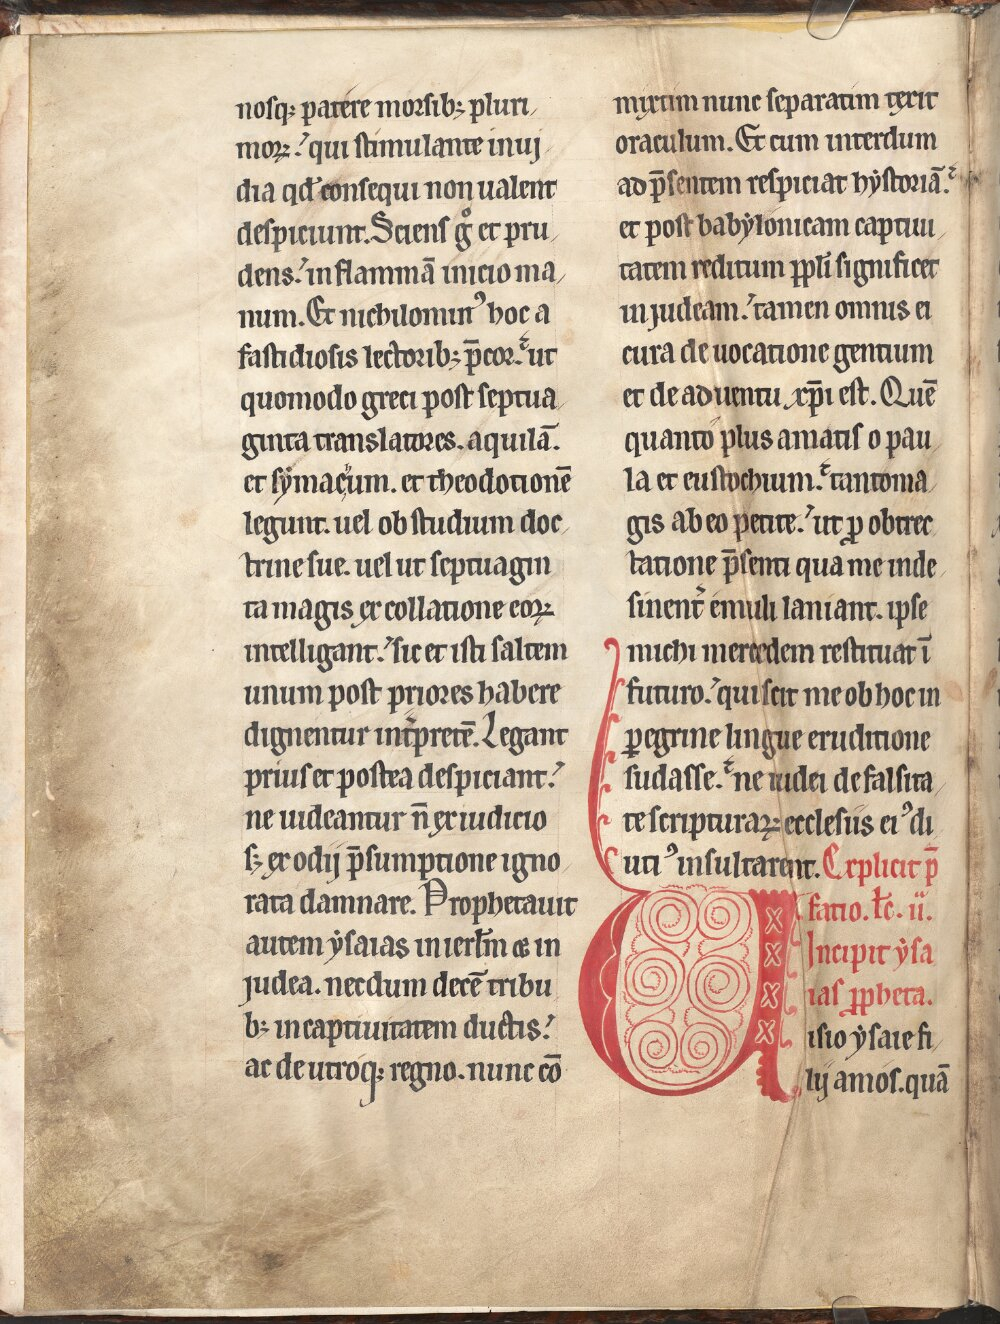 nosqꝫ patere morsibꝫ pluri
moꝝ. qui stimulante inuj
dia qđ consequi non ualent
despiciunt. Sciens gͦ et pru
dens. in flammā inicio ma
num. Et nichilominꝰ hoc a
fastidiosis lectoribꝫ p̄cor. ut
quomodo greci post septua
ginta translatores. aquilā.
et sẏmacum. et theodotionē
legunt. uel ob studium doc
trine sue. uel ut septuagin
ta magis ex collatione eoꝝ
intelligant. sic et isti saltem
unum post priores habere
dignentur int̄pretē. Legant
prius et postea despiciant.
ne uideantur ñ ex iudicio
sꝫ ex odij p̄sumptione igno
rata damnare. Prophetauit
autem ẏsaias in ierlm̄ & in
judea. necdum decē tribu
bꝫ in captiuitatem ductis.
ac de utroqꝫ regno. nunc cō
mixtim nunc separatim texit
oraculum. Et cum interdum
ad p̄sentem respiciat hẏstoriā.
et post babẏlonicam captiui
tatem reditum ꝓpli significet
in judeam. tamen omnis ei
cura de uocatione gentium
et de aduentu xp̄i est. Quē
quanto plus amatis o pau
la et eustochium. tanto ma
gis ab eo petite. ut ꝓ obtrec
tatione p̄senti qua me inde
sinent̄ emuli laniant. ipse
michi mercedem restituat ī
futuro. qui scit me ob hoc in
ꝑegrine lingue eruditione
sudasse. ne iudei de falsita
te scripturaꝝ ecclesiis eiꝰ di
utiꝰ insultarent. Explicit p̄
fatio. Incipit ẏsa
ias ꝓpheta.
Visio ẏsaie fi
lij amos. quā